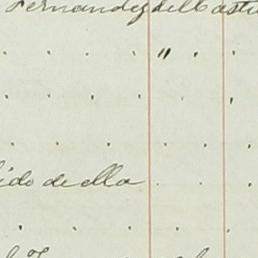 Fernandez del Casti
. . . . " . .
. . . . . ,
. . . . . .
ido de olla . . .
. . . . .